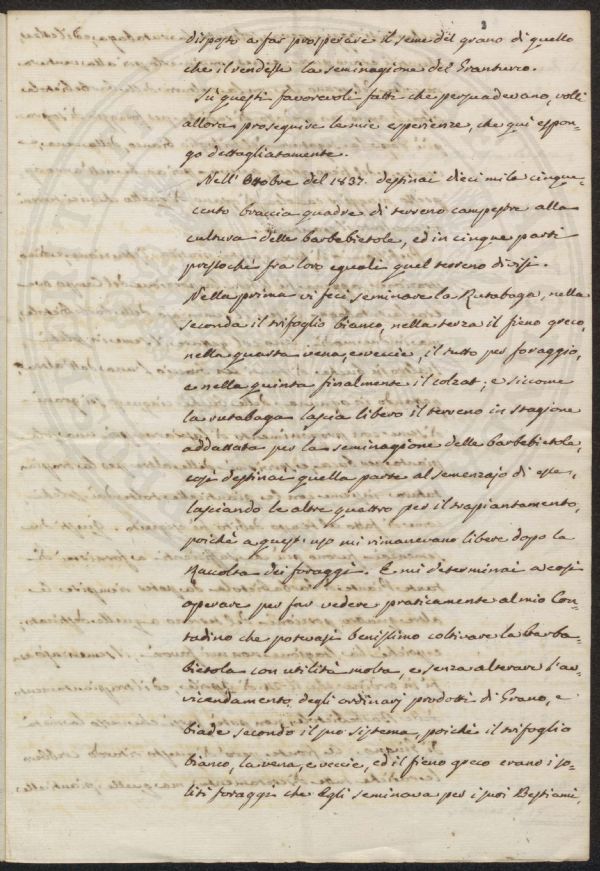 3
disposto a far prosperare il seme del grano di quello
che il rendesse la seminagione del Granturco.
Su questi favorevoli fatti che persuadevano, volli
allora proseguire le mie esperienze, che qui espon-
go dettagliatamente.
Nell' Ottobre del 1837. destinai dieci mila cinque-
cento braccia quadre di terreno campestre alla
cultura delle barbebietole, ed in cinque parti
pressochè fra loro eguali quel terreno divisi.
Nella prima vi feci seminare la Rutabaga, nella
seconda il trifoglio bianco, nella terza il fieno greco,
nella quarta vena, e veccie, il tutto per foraggio,
e nella quinta finalmente il colzat; e siccome
la rutabaga lascia libero il terreno in stagione
addattata per la seminagione delle barbebietole,
così destinai quella parte al semenzajo di esse,
lasciando le altre quattro per il traspiantamento,
poichè a quest' uso mi rimanevano libere dopo la
Raccolta dei foraggi. E mi determinai a così
operare per far vedere praticamente al mio Con-
tadino che potevasi benissimo coltivare la barba-
bietola con utilità molta, e senza alterare l'av-
vicendamento degli ordinarj prodotti di Grano, e
biade secondo il suo sistema, poichè il trifoglio
bianco, la vena, e veccie, ed il fieno greco erano i so-
liti foraggi che Egli seminava per i suoi Bestiami,